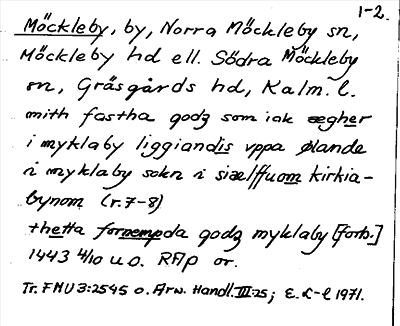 1-2.
Möckleby, by, Norra Möckleby sn,
Möckleby hd ell. Södra Möckleby
sn, Gräsgårds hd, Kalm. l.
mith fastha godz som iak ægher
i myklaby liggiandis vppa ølande
i myklaby sokn i siælffuom kirkia-
bynom (r. 7-8)
thetta fornempda godz myklaby [forts.]
1443 4/10 u.o. RAp or.
Tr. FMU 3:2545 o. Arw. Handl. III:25; E. L-l 1971.